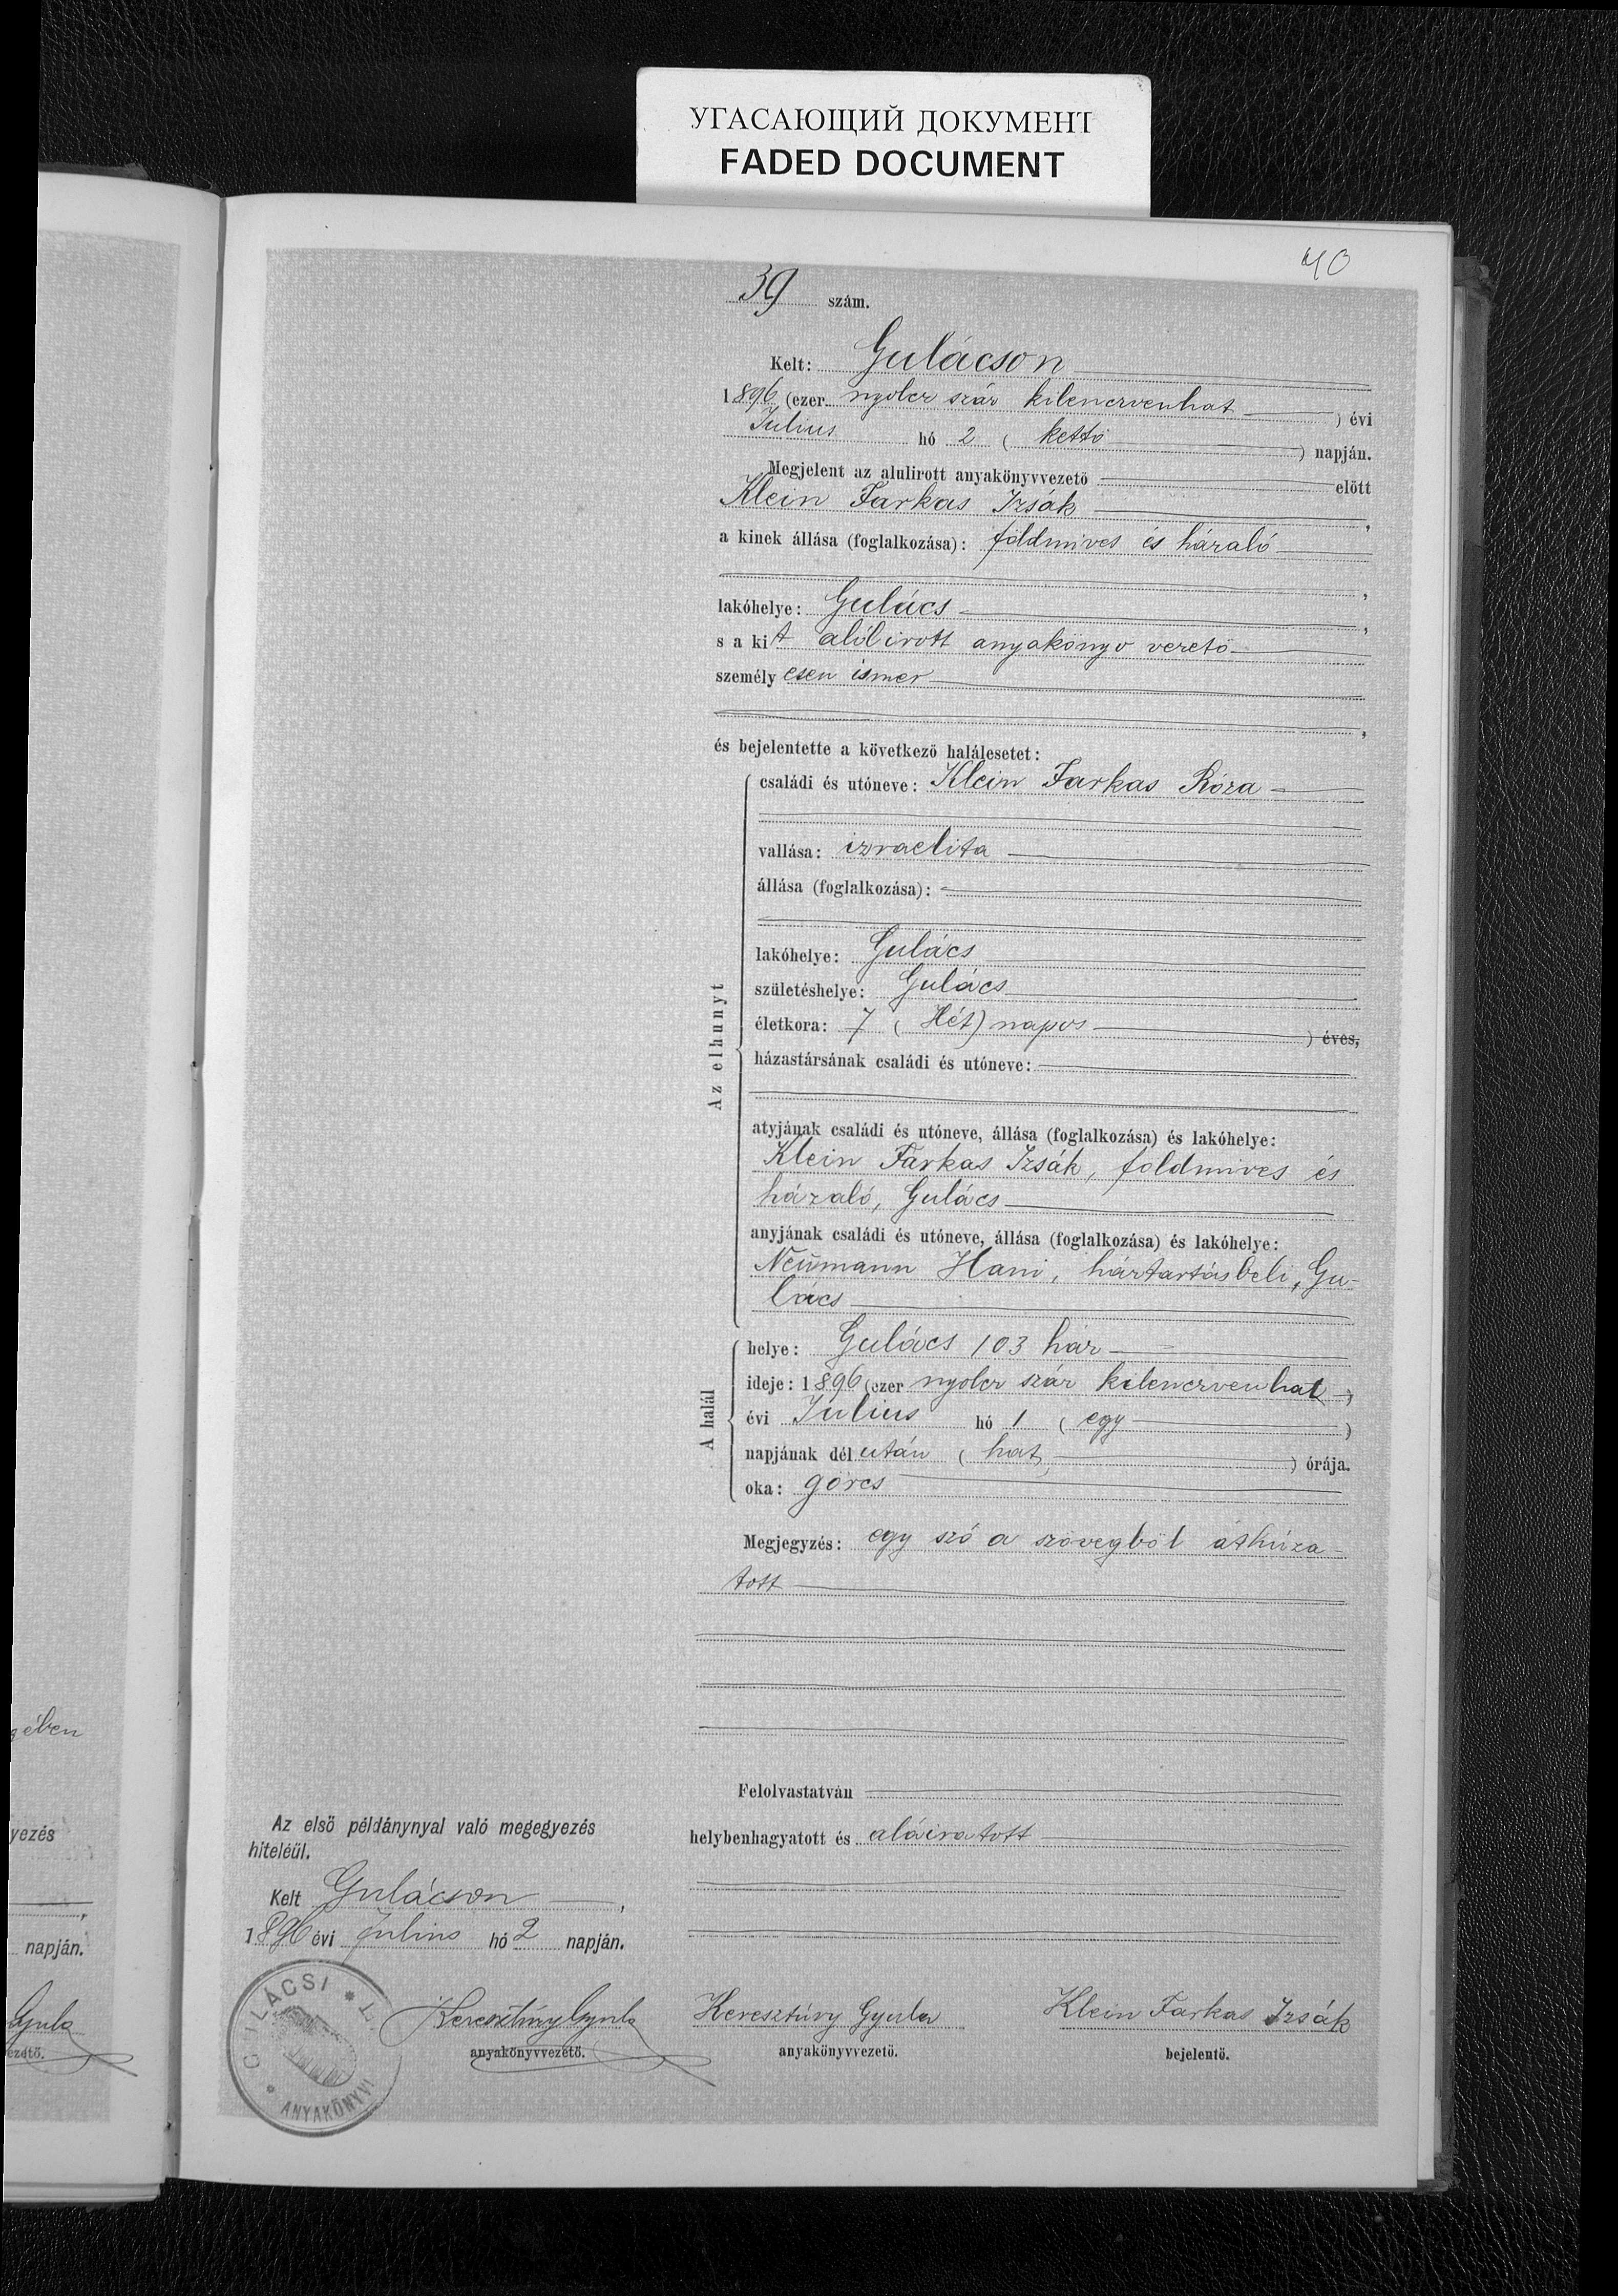 УГАСАЮЩИЙ ДОКУМЕНТ
FADED DOCUMENT
40
39 szám.
Kelt: Gulácson
1896 (ezer nyolcz száz kilenczvenhat ) évi
Július hó 2 ( kettö ) napján.
Megjelent az alulirott anyakönyvvezetö elött
Klein Farkas Izsák ,
a kinek állása (foglalkozása): földmives és házaló
,
lakóhelye: Gulács ,
s a kit alólirott anyakönyv vezetö
személyesen ismer
,
és bejelentette a következö halálesetet:
Az elhunyt
családi és utóneve: Klein Farkas Róza
vallása: izraelita
állása (foglalkozása):
lakóhelye: Gulács
születéshelye: Gulács
életkora: 7 ( Hét) napos ) éves,
házastársának családi és utóneve:
atyjának családi és utóneve, állása (foglalkozása) és lakóhelye:
Klein Farkas Izsák, földmives és
házaló, Gulács
anyjának családi és utóneve, állása (foglalkozása) és lakóhelye:
Neümann Hani, háztartásbeli, Gu-
lács
A halál
helye: Gulács 103 ház
ideje: 1896 (ezer nyolcz száz kilenczvenhat )
évi Július hó 1 ( egy )
napjának dél után ( hat ) órája.
oka: görcs
Megjegyzés: egy szó a szövegböl áthúza-
tott
Felolvastatván
helybenhagyatott és aláiratott
Az elsö példánynyal való megegyezés
hiteléül.
Kelt Gulácson ,
1896 évi Julius hó 2 napján.
Keresztúry Gyula
anyakönyvvezetö.
Keresztúry Gyula
anyakönyvvezetö.
Klein Farkas Izsák
bejelentö.
ANYAKÖNYVI
gében
yezés
,
napján.
Gyula
ezetö.